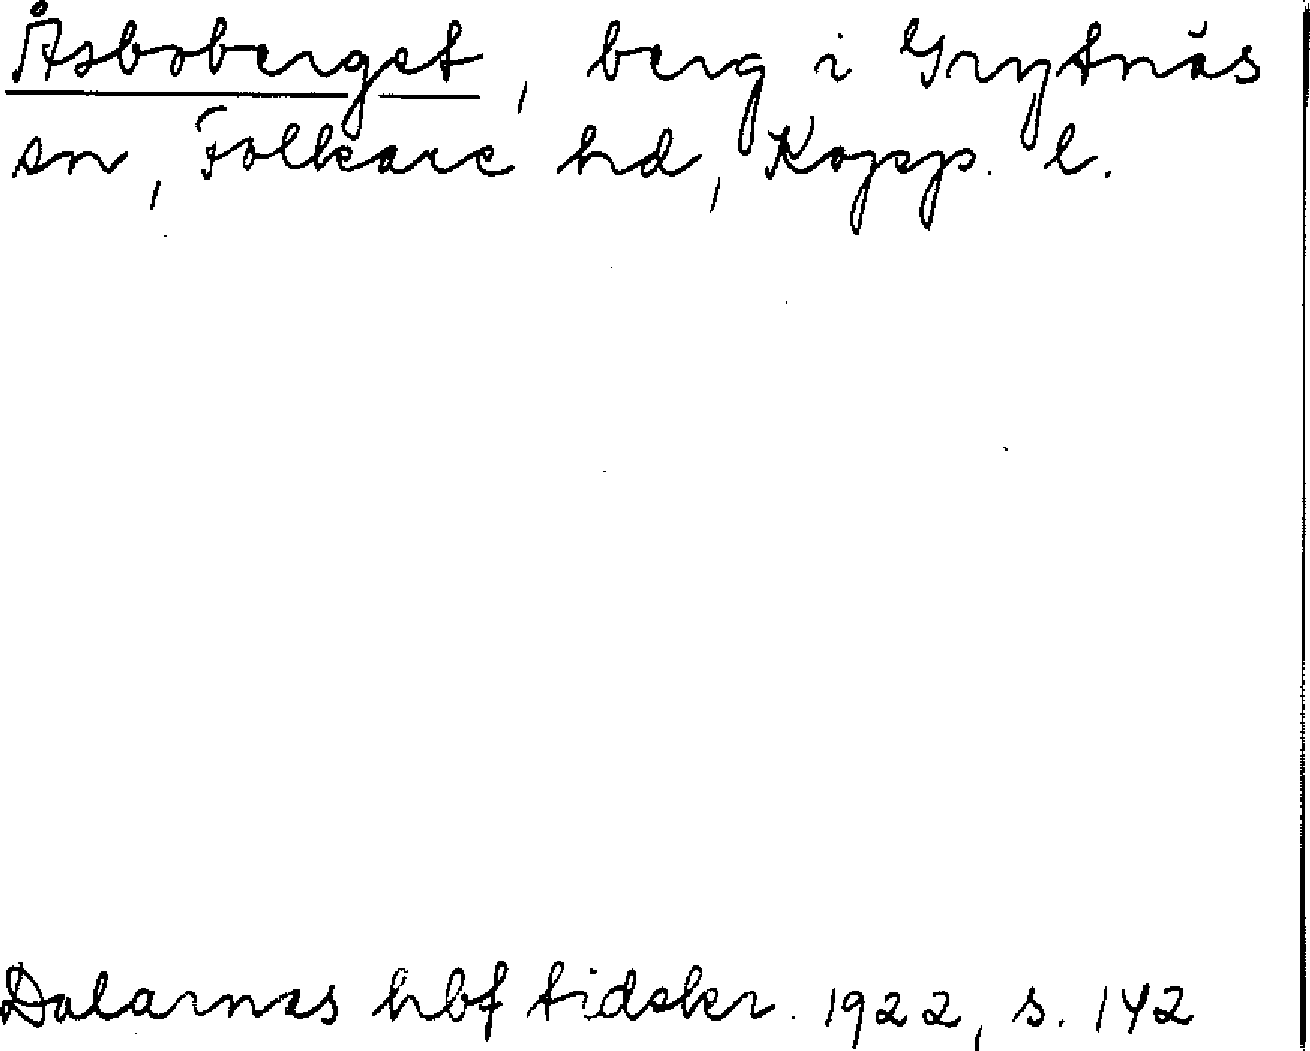 Åsboberget, berg i Grytnäs
sn, Folkare hd, Kopp. l.
Dalarnas hbf tidskr. 1922, s. 142